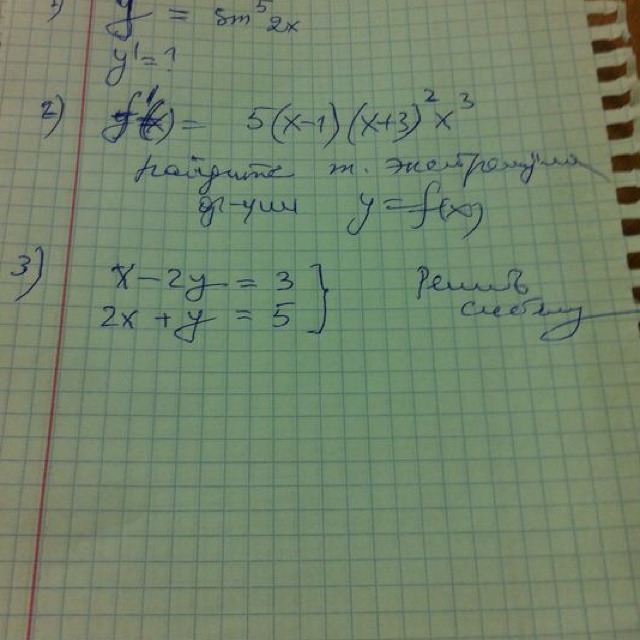 1) y = sin⁵2x
y' = ?
2) f'(x) = 5(x-1)(x+3)²x³
Найдите т. экстремума
ф-ции y = f(x)
3) x - 2y = 3 } Решить
2x + y = 5 систему